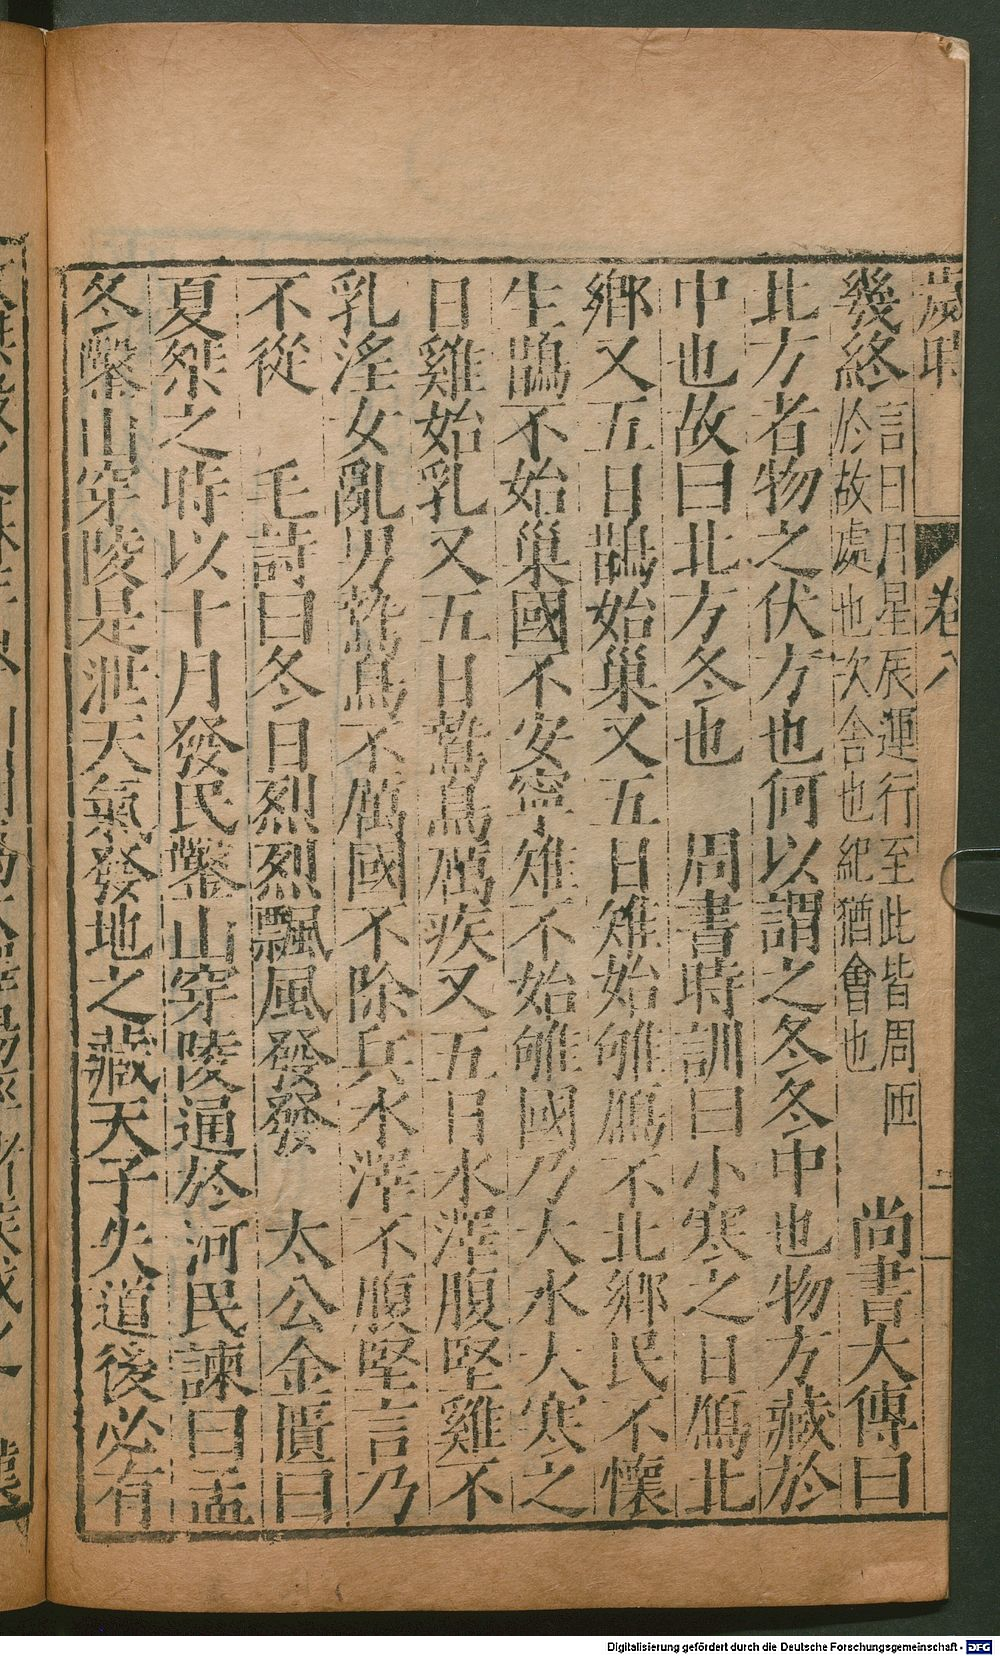 歲時 卷八 二
幾終 言日月星辰運行至此皆周匝
於故處也次舍也紀猶會也 尚書大傳曰
北方者物之伏方也何以謂之冬冬中也物方藏於
中也故曰北方冬也 周書時訓曰小寒之日鴈北
鄉又五日鵲始巢又五日雉始雊鴈不北鄉民不懷
生鵲不始巢國不安寧雉不始雊國乃大水大寒之
日雞始乳又五日鷙鳥厲疾又五日水澤腹堅雞不
乳淫女亂男鷙鳥不厲國不除兵水澤不腹堅言乃
不從 毛詩曰冬日烈烈飄風發發 太公金匱曰
夏桀之時以十月發民鑿山穿陵通於河民諫曰孟
冬鑿山穿陵是泄天氣發地之藏天子失道後必有
Digitalisierung gefördert durch die Deutsche Forschungsgemeinschaft - DFG